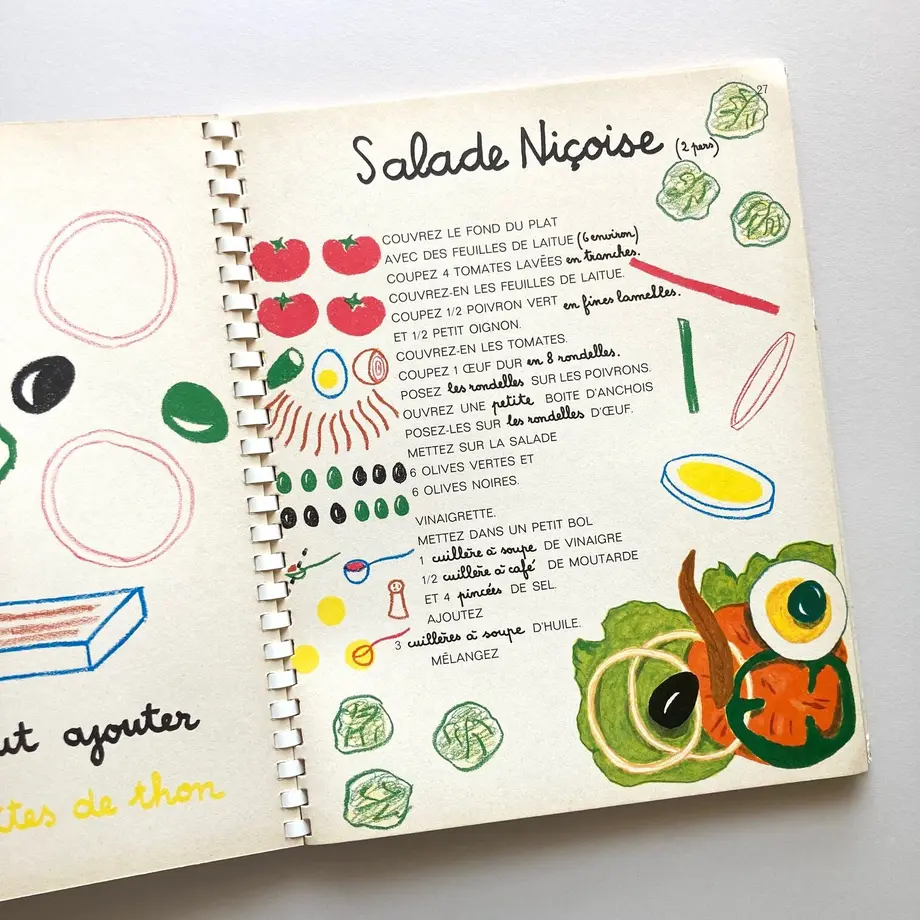 ajouter
de thon
27
Salade Niçoise (2 pers)
COUVREZ LE FOND DU PLAT
AVEC DES FEUILLES DE LAITUE (6 environ)
COUPEZ 4 TOMATES LAVÉES en tranches.
COUVREZ-EN LES FEUILLES DE LAITUE.
COUPEZ 1/2 POIVRON VERT en fines lamelles.
ET 1/2 PETIT OIGNON.
COUVREZ-EN LES TOMATES.
COUPEZ 1 ŒUF DUR en 8 rondelles.
POSEZ les rondelles SUR LES POIVRONS.
OUVREZ UNE petite BOITE D'ANCHOIS
POSEZ-LES SUR les rondelles D'ŒUF.
METTEZ SUR LA SALADE
6 OLIVES VERTES ET
6 OLIVES NOIRES.
VINAIGRETTE.
METTEZ DANS UN PETIT BOL
1 cuillère à soupe DE VINAIGRE
1/2 cuillère à café DE MOUTARDE
ET 4 pincées DE SEL.
AJOUTEZ
3 cuillères à soupe D'HUILE.
MÊLANGEZ